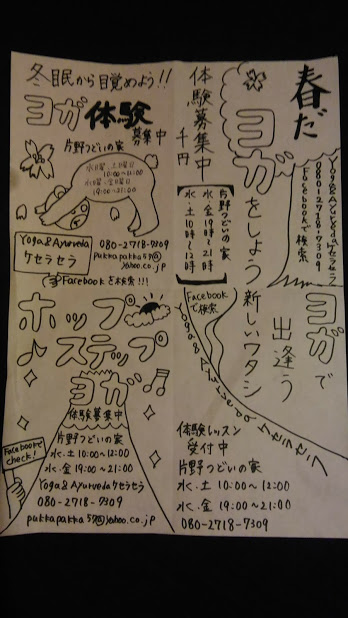 冬眠から目覚めよう!!
ヨガ体験
募集中
片野つどいの家
水曜・土曜日
10:00〜11:00
水曜・金曜日
19:00〜21:00
Yoga&Ayurveda
ケセラセラ
080-2718-7309
pukkapakka57@yahoo.co.jp
Facebookを検索!!!
ホップ
ステップ
ヨガ
体験募集中
片野つどいの家
水・土 10:00〜12:00
水・金 19:00〜21:00
Yoga&Ayurvedaケセラセラ
080-2718-7309
pukkapakka57@yahoo.co.jp
Facebookで
check!
春だ
ヨガをしよう
体験募集中
千円
片野つどいの家
水・金 19時〜21時
水・土 10時〜12時
Yoga&Ayurvedaケセラセラ
080-2718-7309
Facebookで検索
ヨガで
出逢う
新しいワタシ
Facebook
で検索
Yoga&Ayurveda ケセラセラ
体験レッスン
受付中
片野つどいの家
水・土 10:00〜12:00
水・金 19:00〜21:00
080-2718-7309